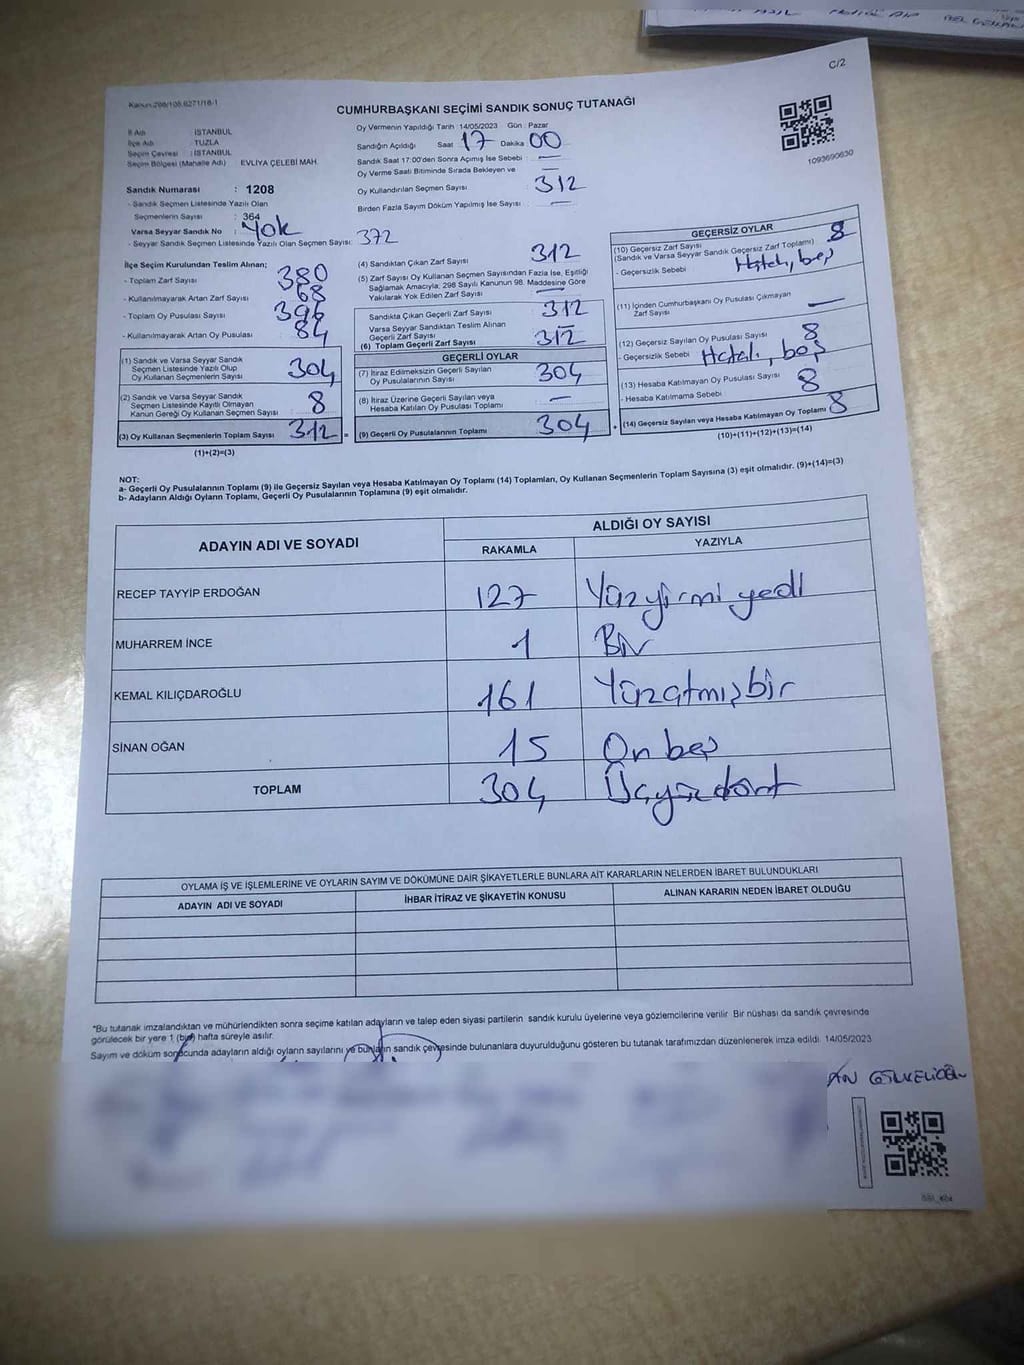 C/2
Kanun:298/108.6271/18-1
CUMHURBAŞKANI SEÇİMİ SANDIK SONUÇ TUTANAĞI
1093690630
İl Adı : İSTANBUL
İlçe Adı : TUZLA
Seçim Çevresi : İSTANBUL
Seçim Bölgesi (Mahalle Adı) EVLİYA ÇELEBİ MAH.
Sandık Numarası : 1208
- Sandık Seçmen Listesinde Yazılı Olan
Seçmenlerin Sayısı : 364
Varsa Seyyar Sandık No : Yok
- Seyyar Sandık Seçmen Listesinde Yazılı Olan Seçmen Sayısı: 372
Oy Vermenin Yapıldığı Tarih : 14/05/2023 Gün : Pazar
Sandığın Açıldığı Saat 17 Dakika 00
Sandık Saat 17:00'den Sonra Açımış İse Sebebi : —
Oy Verme Saati Bitiminde Sırada Bekleyen ve —
Oy Kullandırılan Seçmen Sayısı 312
Birden Fazla Sayım Döküm Yapılmış İse Sayısı : —
İlçe Seçim Kurulundan Teslim Alınan;
- Toplam Zarf Sayısı 380
- Kullanılmayarak Artan Zarf Sayısı 68
- Toplam Oy Pusulası Sayısı 396
- Kullanılmayarak Artan Oy Pusulası 84
(1) Sandık ve Varsa Seyyar Sandık
Seçmen Listesinde Yazılı Olup
Oy Kullanan Seçmenlerin Sayısı 304
(2) Sandık ve Varsa Seyyar Sandık
Seçmen Listesinde Kayıtlı Olmayan
Kanun Gereği Oy Kullanan Seçmen Sayısı 8
(3) Oy Kullanan Seçmenlerin Toplam Sayısı 312 =
(1)+(2)=(3)
(4) Sandıktan Çıkan Zarf Sayısı 312
(5) Zarf Sayısı Oy Kullanan Seçmen Sayısından Fazla İse, Eşitliği
Sağlamak Amacıyla; 298 Sayılı Kanunun 98. Maddesine Göre
Yakılarak Yok Edilen Zarf Sayısı —
Sandıkta Çıkan Geçerli Zarf Sayısı 312
Varsa Seyyar Sandıktan Teslim Alınan
Geçerli Zarf Sayısı —
(6) Toplam Geçerli Zarf Sayısı 312
GEÇERLİ OYLAR
(7) İtiraz Edilmeksizin Geçerli Sayılan
Oy Pusulalarının Sayısı 304
(8) İtiraz Üzerine Geçerli Sayılan veya
Hesaba Katılan Oy Pusulası Toplamı —
(9) Geçerli Oy Pusulalarının Toplamı 304 +
GEÇERSİZ OYLAR
(10) Geçersiz Zarf Sayısı 8
(Sandık ve Varsa Seyyar Sandık Geçersiz Zarf Toplamı)
- Geçersizlik Sebebi Hatalı, boş
(11) İçinden Cumhurbaşkanı Oy Pusulası Çıkmayan
Zarf Sayısı —
(12) Geçersiz Sayılan Oy Pusulası Sayısı 8
- Geçersizlik Sebebi Hatalı, boş
(13) Hesaba Katılmayan Oy Pusulası Sayısı 8
- Hesaba Katılmama Sebebi
(14) Geçersiz Sayılan veya Hesaba Katılmayan Oy Toplamı 8
(10)+(11)+(12)+(13)=(14)
NOT:
a- Geçerli Oy Pusulalarının Toplamı (9) ile Geçersiz Sayılan veya Hesaba Katılmayan Oy Toplamı (14) Toplamları, Oy Kullanan Seçmenlerin Toplam Sayısına (3) eşit olmalıdır. (9)+(14)=(3)
b- Adayların Aldığı Oyların Toplamı, Geçerli Oy Pusulalarının Toplamına (9) eşit olmalıdır.
ADAYIN ADI VE SOYADI ALDIĞI OY SAYISI
RAKAMLA YAZIYLA
RECEP TAYYİP ERDOĞAN 127 Yüzyirmi yedi
MUHARREM İNCE 1 Bir
KEMAL KILIÇDAROĞLU 161 Yüzatmışbir
SİNAN OĞAN 15 On beş
TOPLAM 304 Üçyüzdört
OYLAMA İŞ VE İŞLEMLERİNE VE OYLARIN SAYIM VE DÖKÜMÜNE DAİR ŞİKAYETLERLE BUNLARA AİT KARARLARIN NELERDEN İBARET BULUNDUKLARI
ADAYIN ADI VE SOYADI İHBAR İTİRAZ VE ŞİKAYETİN KONUSU ALINAN KARARIN NEDEN İBARET OLDUĞU
*Bu tutanak imzalandıktan ve mühürlendikten sonra seçime katılan adayların ve talep eden siyasi partilerin sandık kurulu üyelerine veya gözlemcilerine verilir. Bir nüshası da sandık çevresinde
görülecek bir yere 1 (bir) hafta süreyle asılır.
Sayım ve döküm sonucunda adayların aldığı oyların sayılarını ve bunların sandık çevresinde bulunanlara duyurulduğunu gösteren bu tutanak tarafımızdan düzenlenerek imza edildi. 14/05/2023